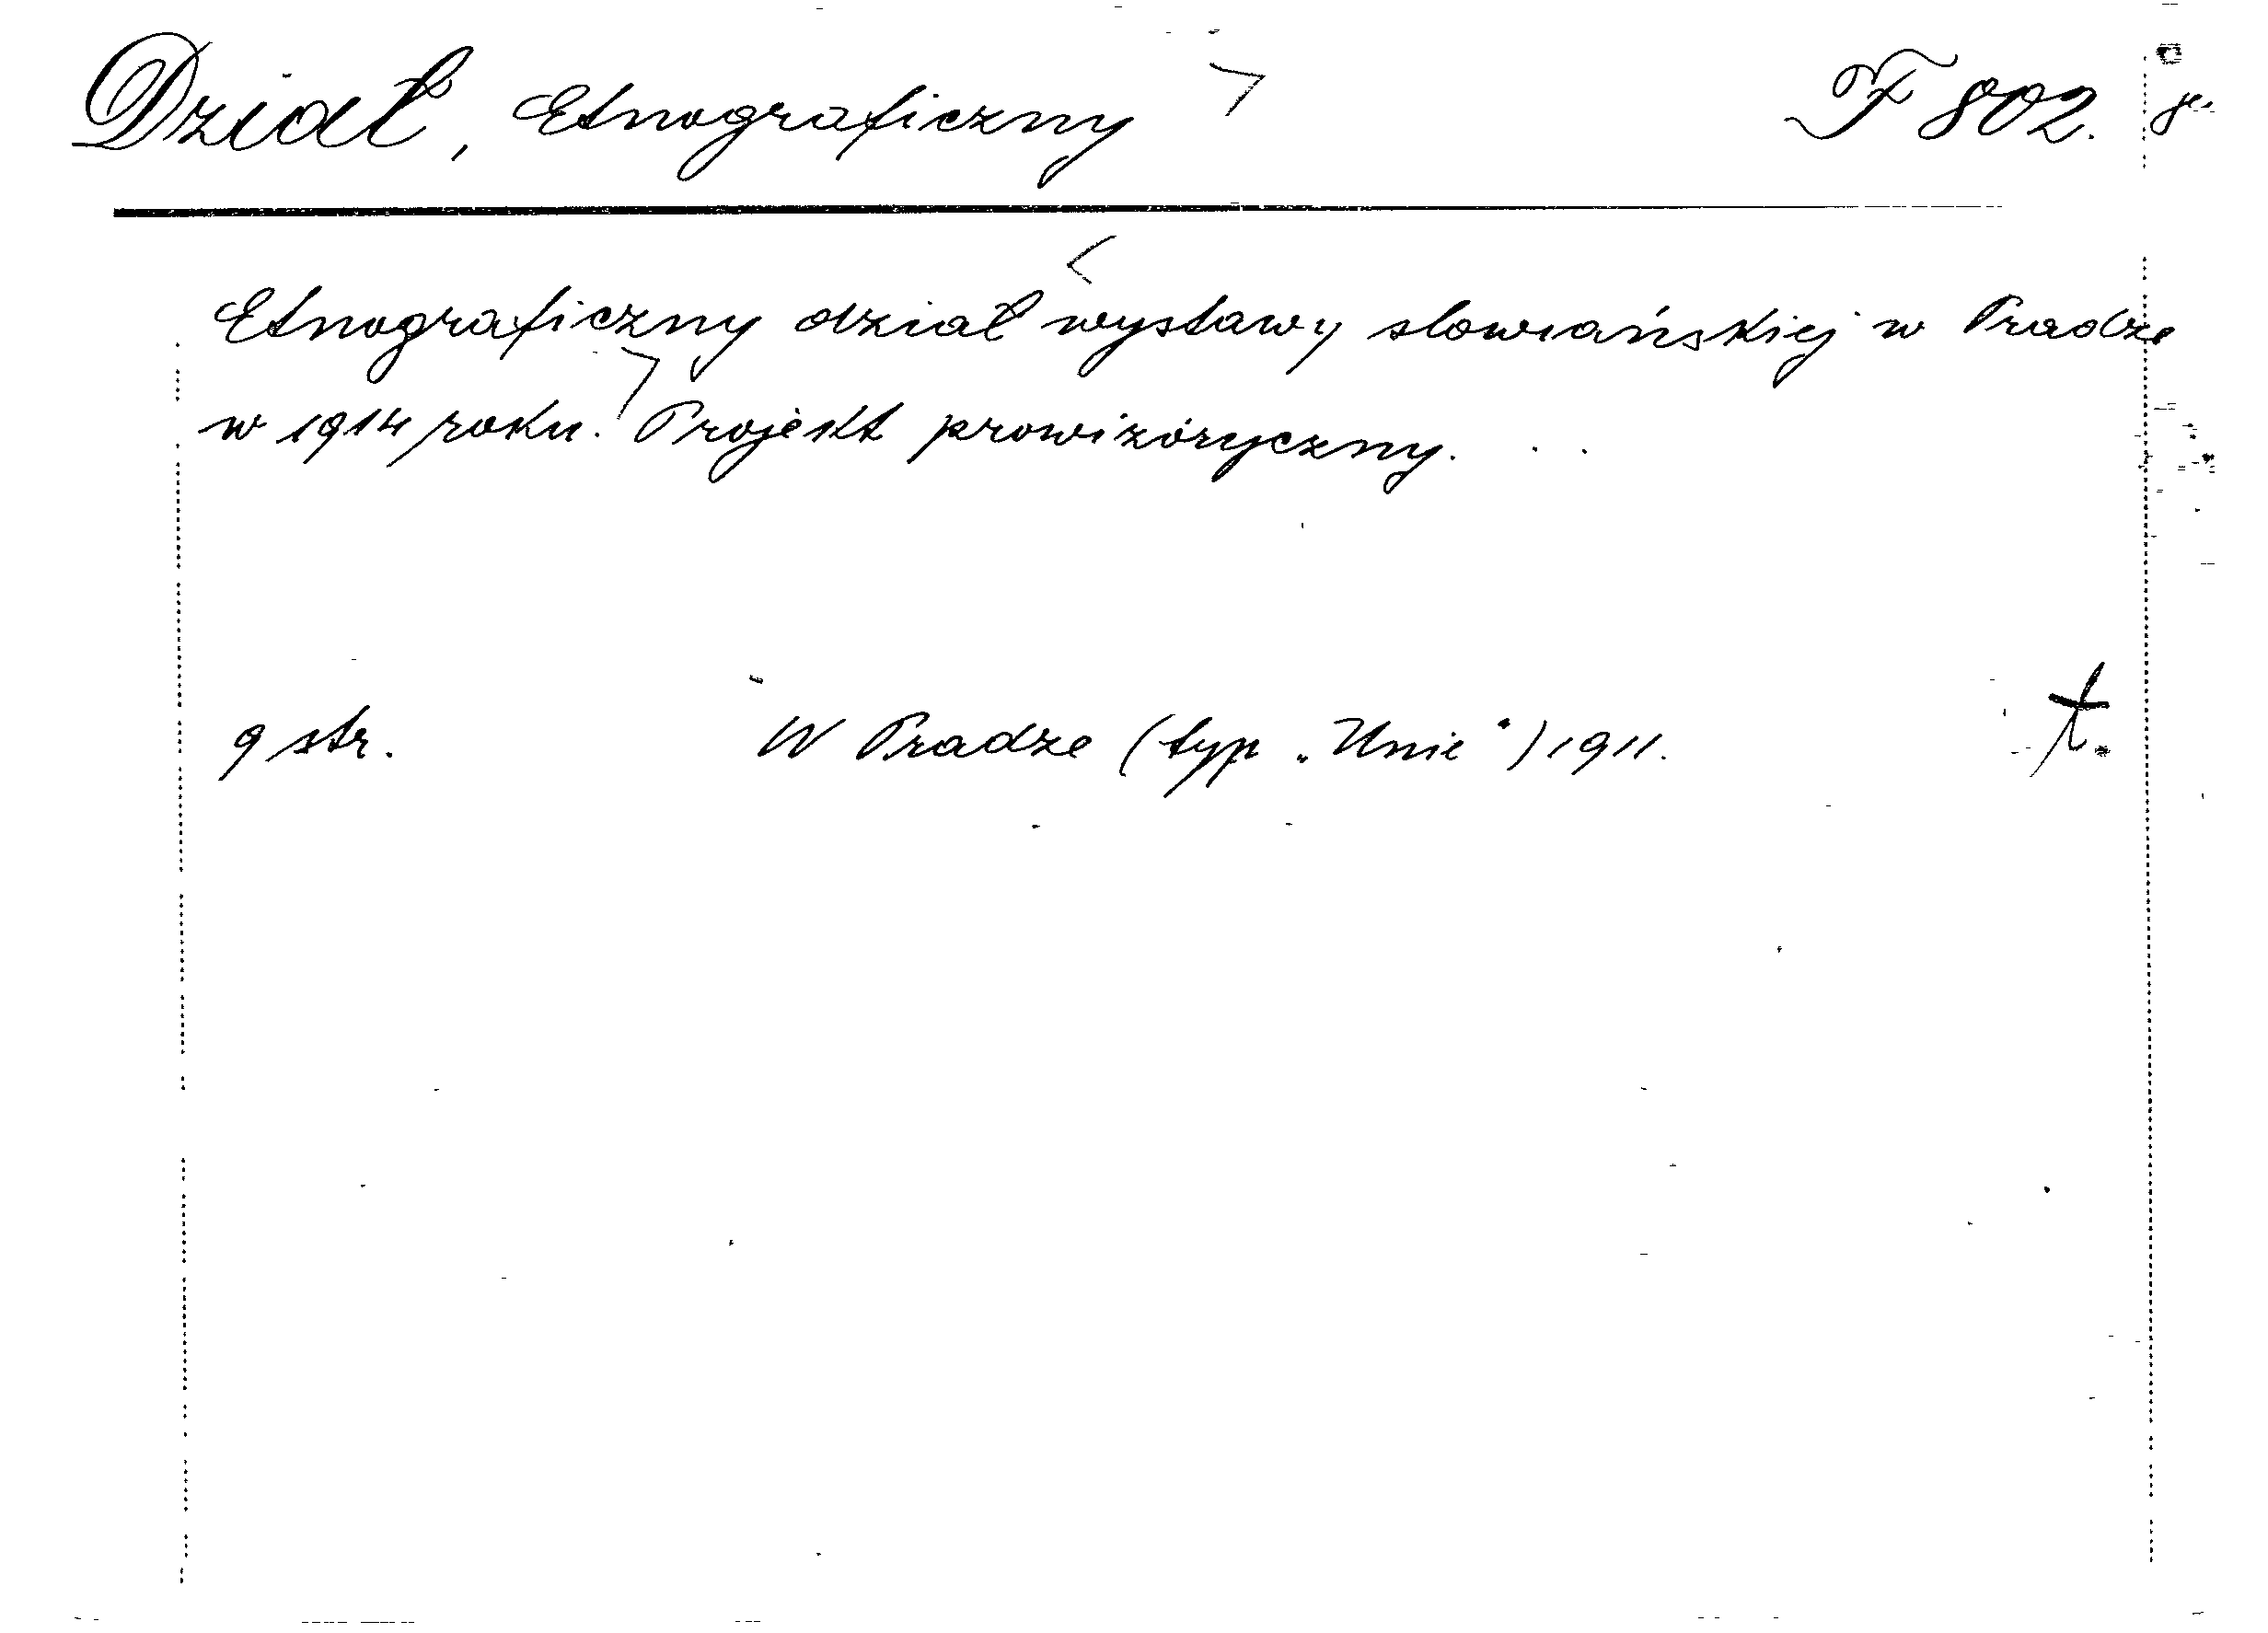 Dział, Etnograficzny F 802.
Etnograficzny dział wystawy slowiańskiej w Pradze
w 1914 roku. Projekt prowizóryczny.
9 str. W Pradze (typ „Unie") 1911. t.